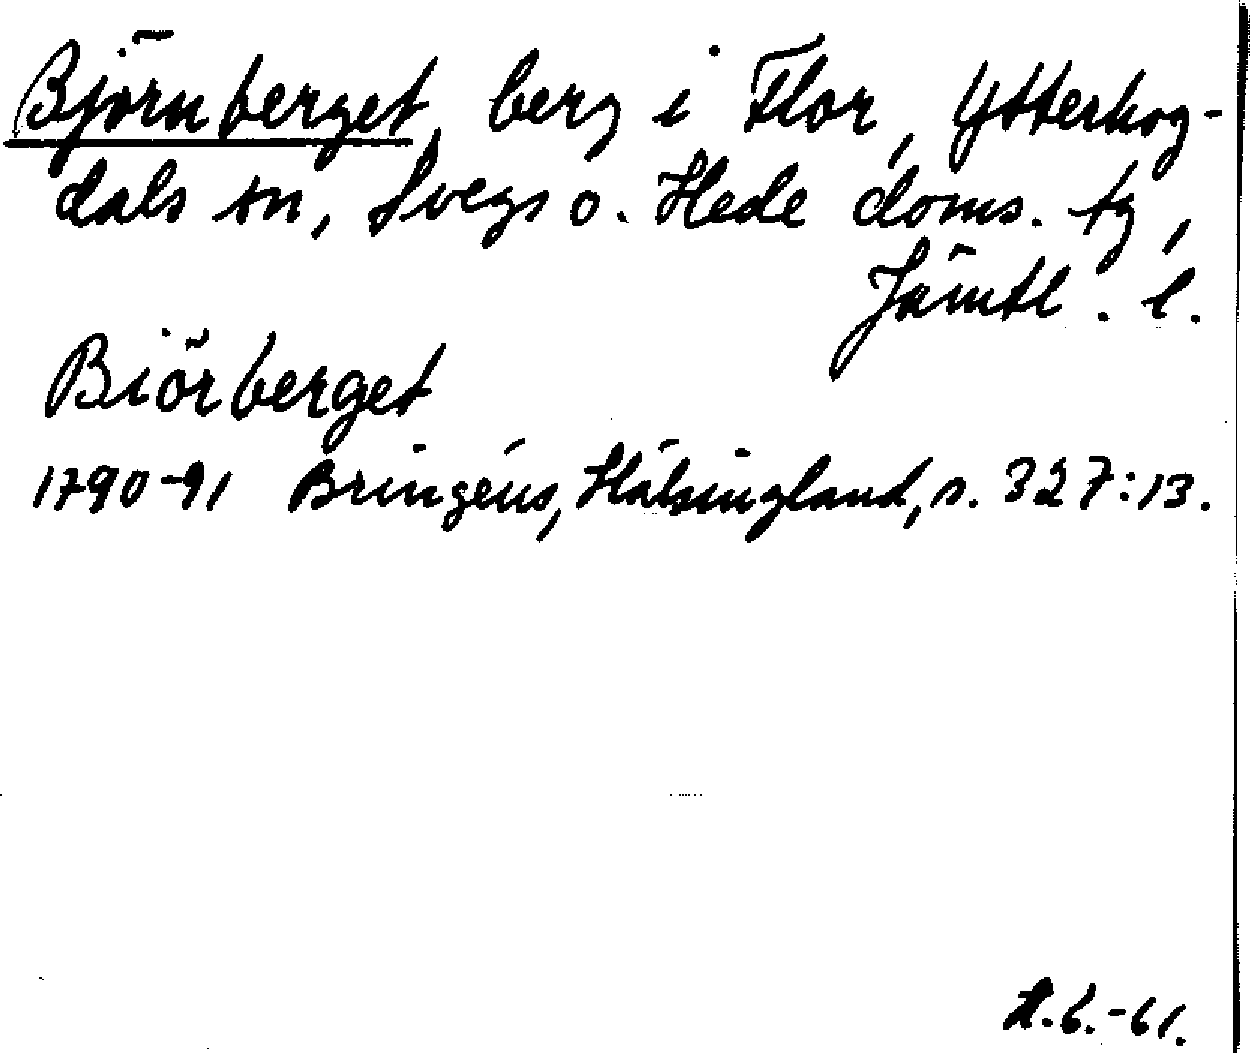 Björnberget, berg i Flor, Ytterhog-
dals sn, Svegs o. Hede doms. tg,
Jämtl. l.
Biörberget
1790-91 Bringéus, Hälsingland, s. 327:13.
6.-61.